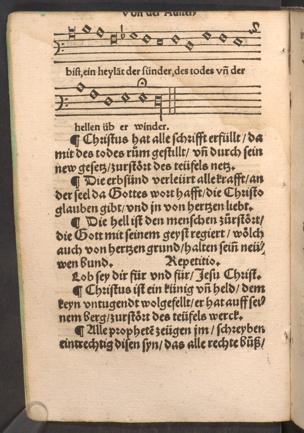 Von der Aulten
bist, ein heylāt der sünder, des todes vñ der
hellen üb er winder.
¶ Christus hat alle schrifft erfüllt / da
mit des todes rům gestillt / vñ durch sein
new gesetz / zurstört des teüfels netz.
¶ Die erbsünd verleürt alle krafft / an
der seel da Gottes wort hafft / die Christo
glauben gibt / vnd in von hertzen liebt.
¶ Die hell ist den menschen zůrstört /
die Gott mit seinem geyst regiert / wölch
auch von hertzen grund / halten sein neü /
wen bund. Repetitio.
Lob sey dir für vnd für / Jesu Christ.
¶ Christus ist ein künig vñ held / dem
keyn vntugendt wolgefellt / er hat auff sei /
nem berg / zurstört des teüfels werck.
¶ Alle prophetē zeügen jm / schreyben
eintrechtig disen syn / das alle rechte bůß /